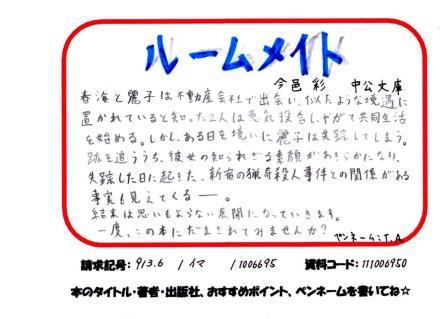 ルームメイト
今邑 彩 中公文庫
春海と麗子は不動産会社で出会い、似たような境遇に
置かれていると知った2人は意気投合し、やがて共同生活
を始める。しかし、ある日を境いに麗子は失踪してしまう。
跡を追ううち、彼女の知られざる素顔があきらかになり、
失踪した日に起きた、新宿の猟奇殺人事件との関係がある
事実も見えてくる――。
結末は思いもよらない展開になっていきます。
一度、この本にだまされてみませんか?
ペンネーム:T.A
請求記号: 913.6 / イマ / 1006695 資料コード: 111006950
本のタイトル・著者・出版社、おすすめポイント、ペンネームを書いてね☆